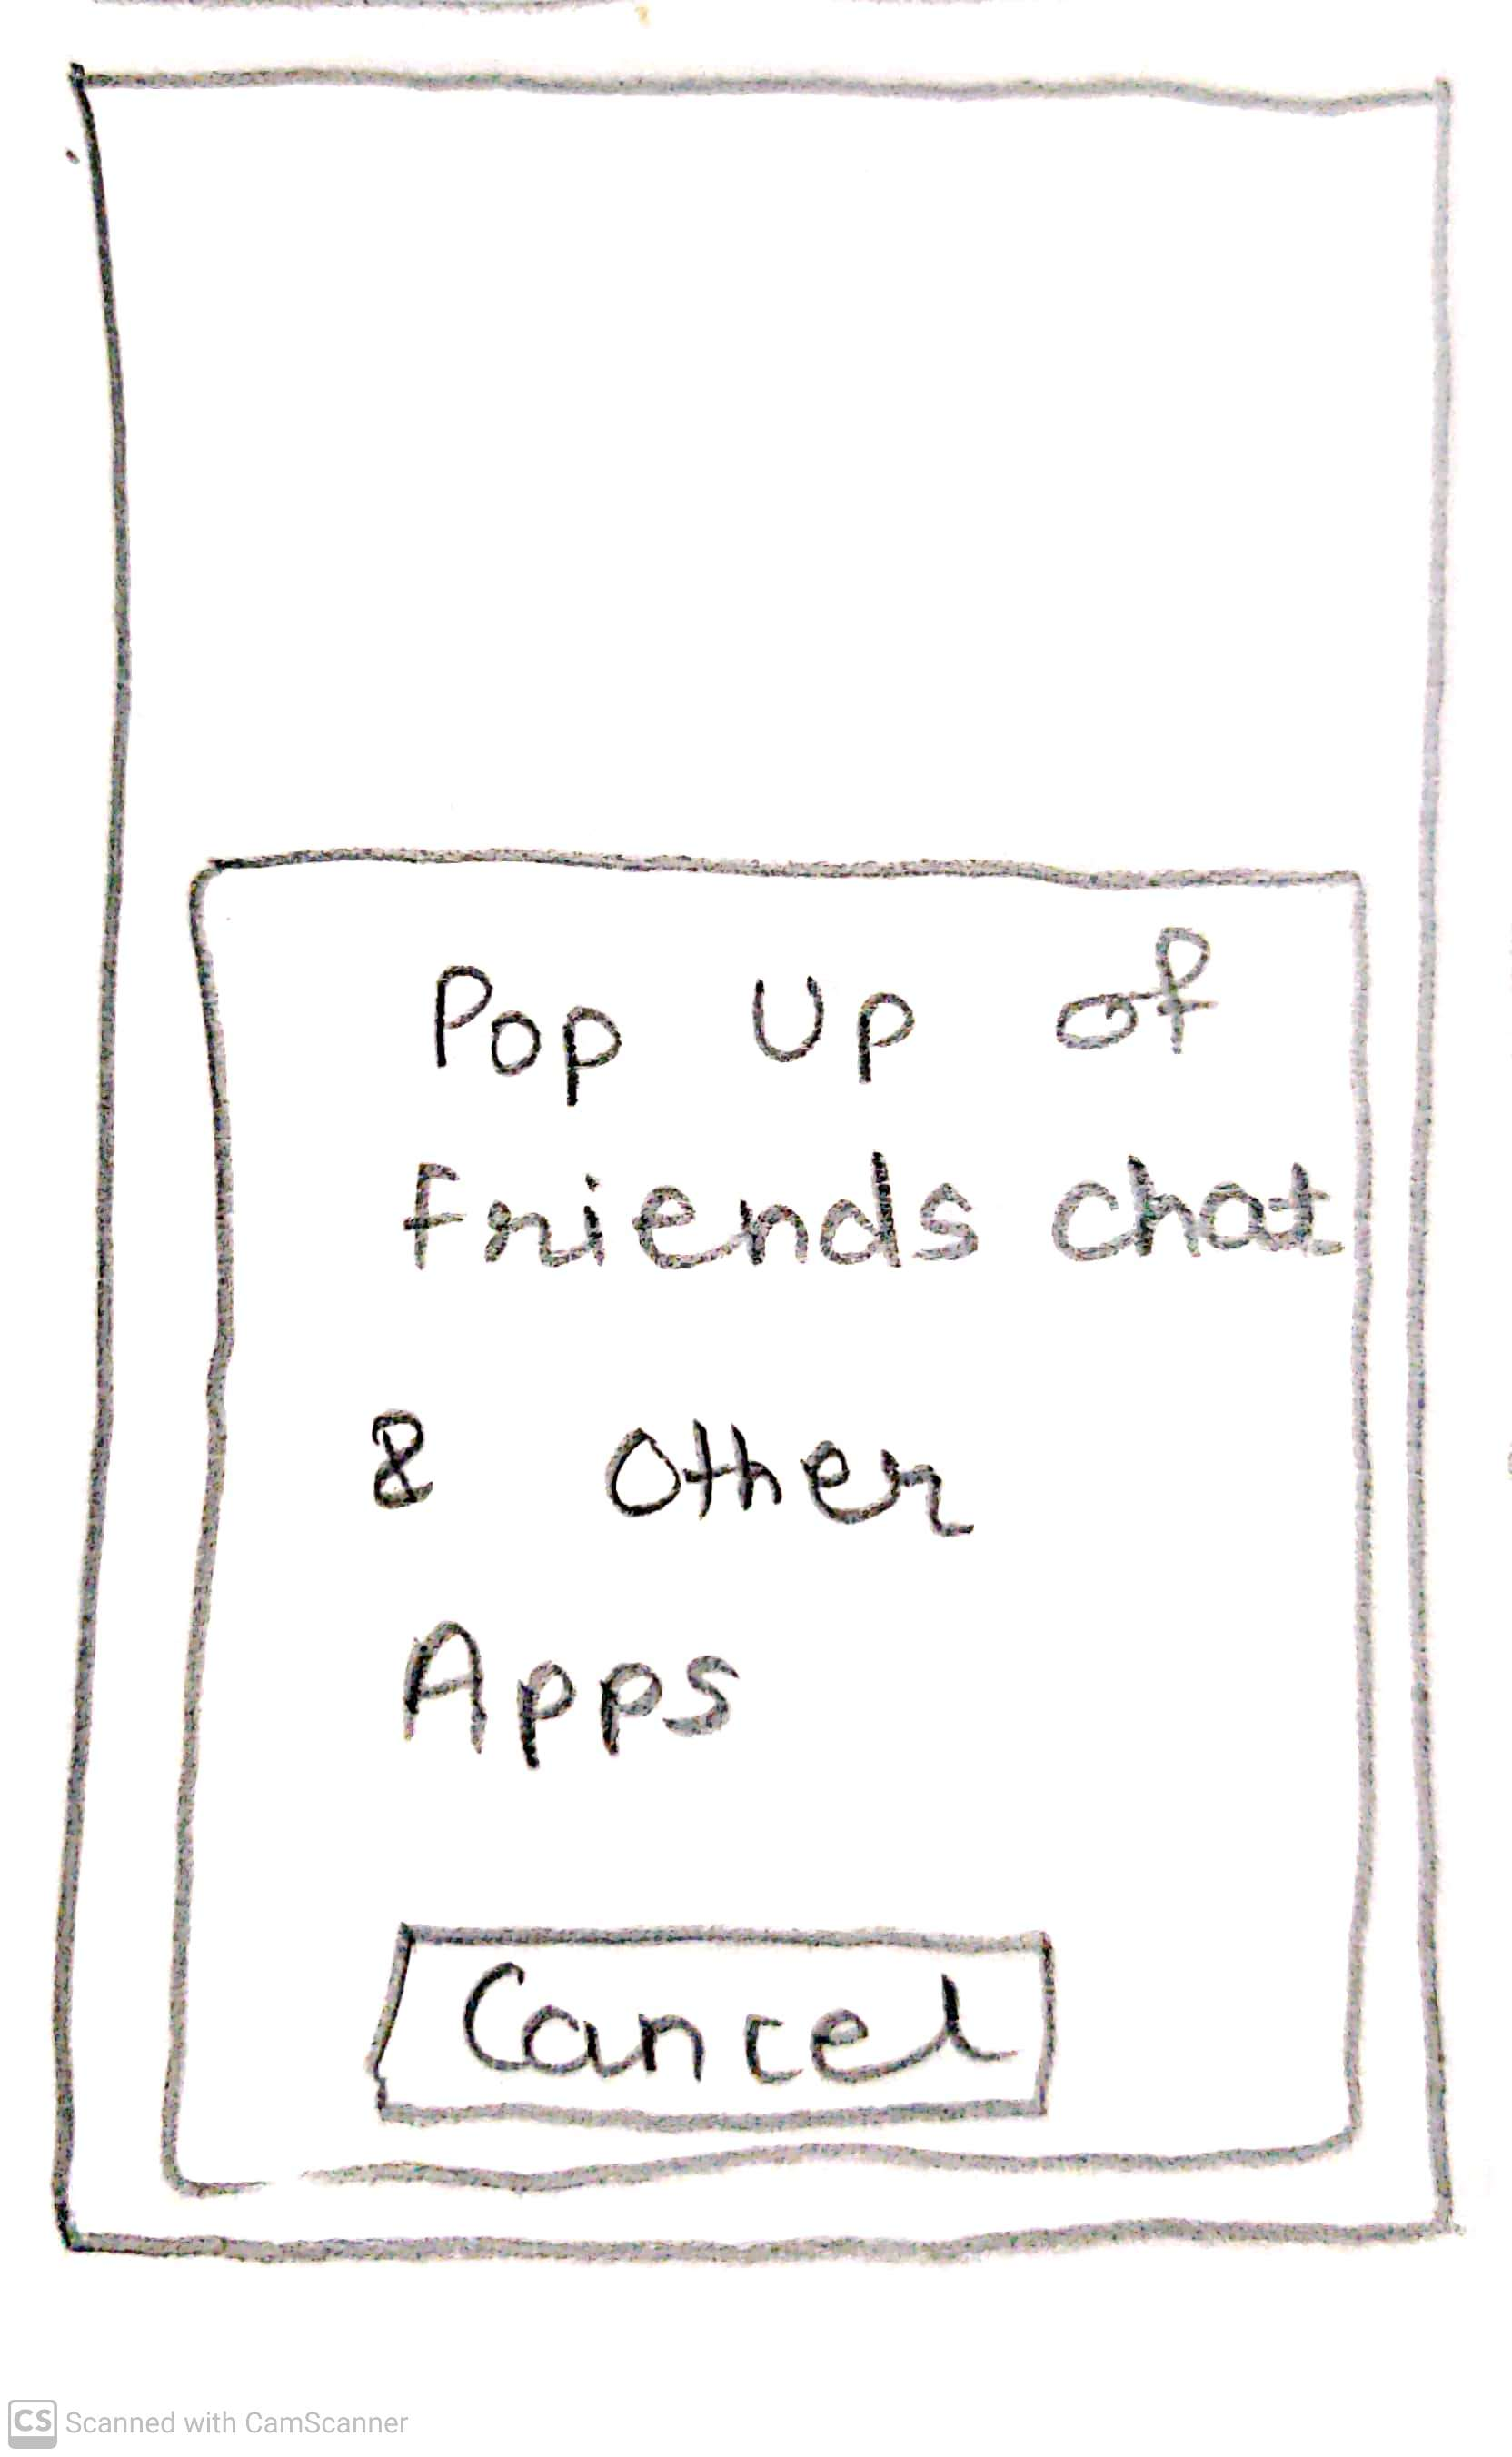 Pop Up of
Friends chat
& Other
Apps
Cancel
CS Scanned with CamScanner